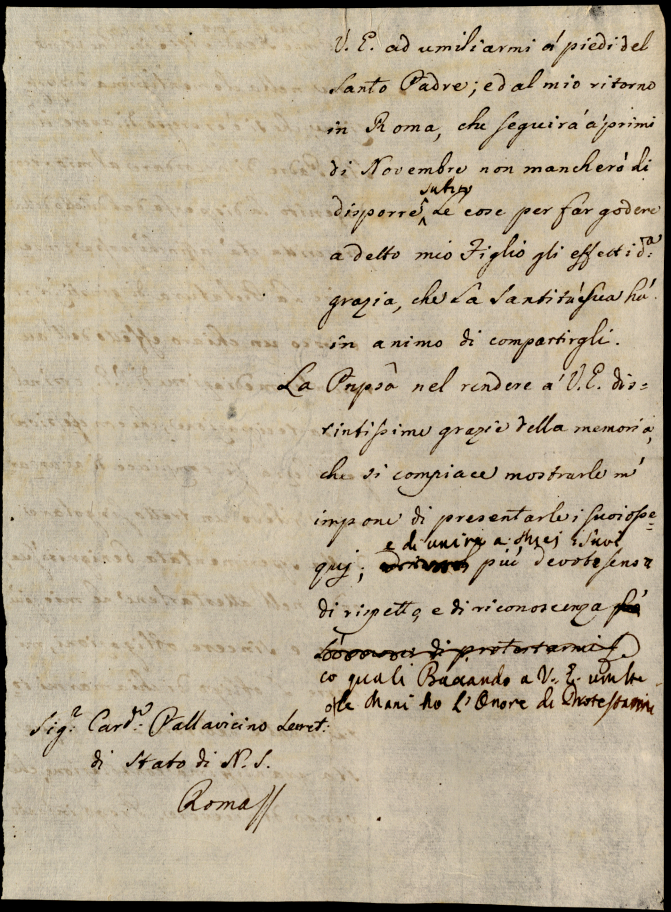 V. E. ad umiliarmi a' piedi del
Santo Padre; ed al mio ritorno
in Roma, che seguirà a' primi
di Novembre non mancherò di
subito
disporre le cose per far godere
a detto mio Figlio gli effetti d.ª
grazia, che La Santità Sua hà
in animo di compartirgli.
La Pnpsã nel rendere a' V. E. dis=
tintissime grazie della memoria,
che si compiace mostrarle m'
impone di presentarle i suoi osse=
e di unire a miei i suoi
quj; più devoti sensi
di rispetto, e di riconoscenza
di protestarmi
co quali Baciando a V. E. umilte
le Mani ho l'Onore di Protestarmi
Sig.r Card.e Pallavicino Segret.
di Stato di N. S.
Roma